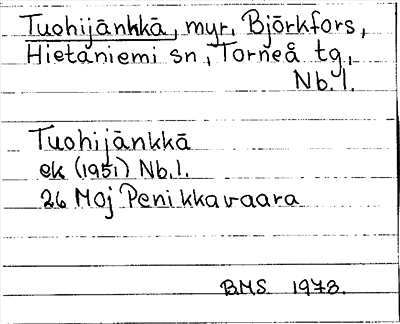 Tuohijänkkä, myr, Björkfors,
Hietaniemi sn, Torneå tg,
Nb.l.
Tuohijänkkä
ek (1951) Nb.l.
26 Moj Penikkavaara
BMS 1978.